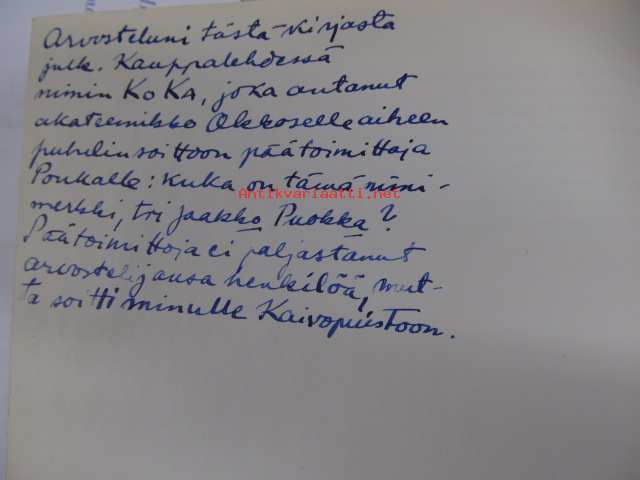 Arvosteluni tästä kirjasta
julk. Kauppalehdessä
nimin KoKa, joka antanut
akateemikko Okkoselle aiheen
puhelinsoittoon päätoimittaja
Poukalle: kuka on tämä nimi-
merkki, tri Jaakko Puokka?
Päätoimittaja ei paljastanut
arvostelijansa henkilöä, mut-
ta soitti minulle Kaivopuistoon.
Antikvariaatti.net